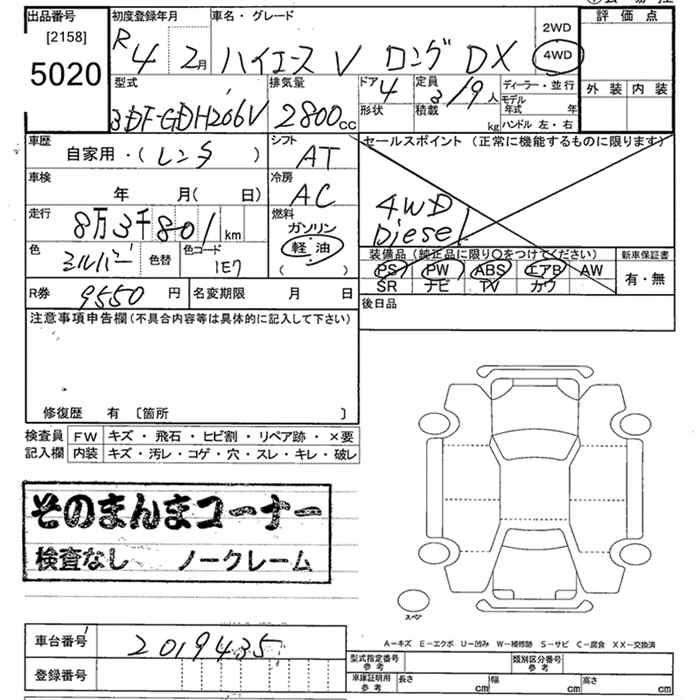 出品番号
[2158]
5020
初度登録年月
R4 2月
車名・グレード
ハイエースV ロング DX
2WD
4WD
評価点
外装 内装
型式
3DF-GDH206V
排気量
2800cc
ドア 4
形状
定員 3/9人
積載 kg
ディーラー・並行
モデル年式 年
ハンドル 左・右
車歴
自家用・(レンタ)
シフト
AT
セールスポイント(正常に機能するものに限ります)
4WD
Diesel
車検
年 月(日)
冷房
AC
走行
8万3千801km
燃料
ガソリン
軽油
( )
色
シルバー
色替
色コード
1E7
装備品(純正品に限り○をつけてください)
PS PW ABS エアB AW
SR ナビ TV カワ
新車保証書
有・無
R券 9550円
名変期限 月 日
後日品
注意事項申告欄(不具合内容等は具体的に記入して下さい)
修復歴 有 [箇所 ]
検査員記入欄
FW キズ・飛石・ヒビ割・リペア跡・×要
内装 キズ・汚レ・コゲ・穴・スレ・キレ・破レ
そのまんまコーナー
検査なし ノークレーム
スペア
車台番号
2019435
登録番号
A−キズ E−エクボ U−凹み W−補修跡 S−サビ C−腐食 XX−交換済
型式指定番号 参考
類別区分番号 参考
車庫証明用 参考
長さ cm
幅 cm
高さ cm